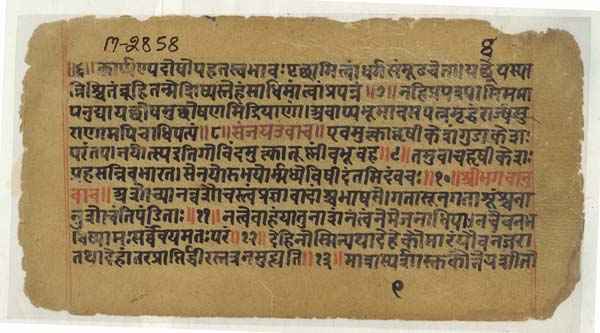 M-2858
४
॥६॥ कार्पण्यदोषोपहतस्वभावः पृच्छामि त्वां धर्मसंमूढचेताः । यच्छ्रेयः स्या
न्निश्चितं ब्रूहि तन्मे शिष्यस्तेहं साधि मां त्वां प्रपन्नं ॥७॥ नहि प्रपश्यामि ममा
पनुद्याद्यच्छोकमुच्छोषणमिंद्रियाणां । अवाप्य भूमावसपत्नमृद्धं राज्यं सु
राणामपि चाधिपत्यं ॥८॥ संजय उवाच ॥ एवमुक्त्वा हृषीकेशं गुडाकेशः
परंतपः । न योत्स्य इति गोविंदमुक्त्वा तूष्णीं बभूव ह ॥९॥ तमुवाच हृषीकेशः
प्रहसन्निव भारत । सेनयोरुभयोर्मध्ये विषीदंतमिदं वचः ॥१०॥ श्रीभगवानु
वाच ॥ अशोच्यानन्वशोचस्त्वं प्रज्ञावादांश्च भाषसे । गतासूनगतासूंश्च ना
नुशोचंति पंडिताः ॥११॥ नत्वेवाहं यातु नासं न त्वं नेमे जनाधिपाः । न चैव न भ
विष्यामः सर्वे वयमतः परं ॥१२॥ देहिनोस्मिन्यथा देहे कौमारं यौवनं जरा
तथा देहांतरप्राप्तिर्धीरस्तत्र न मुह्यति ॥१३॥ मात्रास्पर्शास्तु कौंतेय शीतो
९